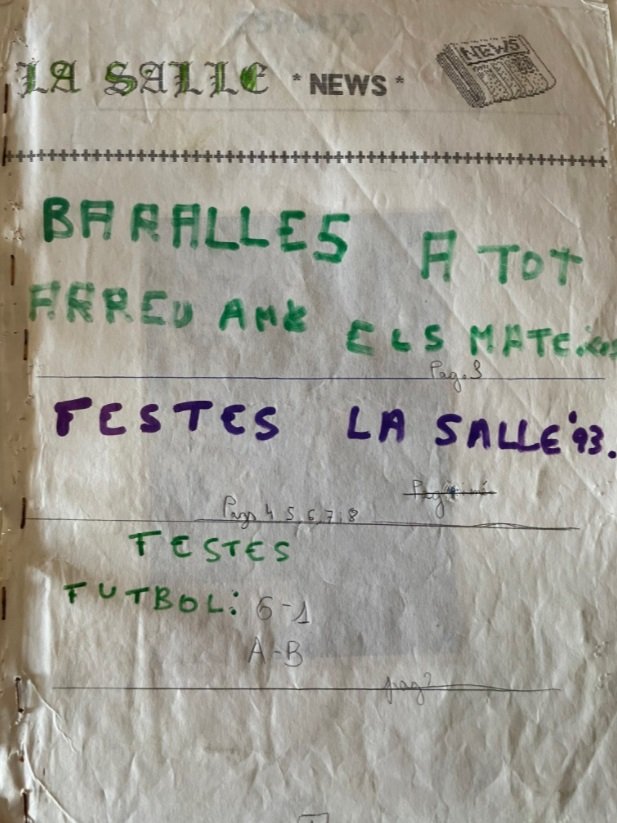 LA SALLE * NEWS *
NEWS
BARALLES A TOT
ARREU AMB ELS MATEixos
Pag. 3
FESTES LA SALLE '93.
Pags 4 5, 6, 7, 8
FESTES
FUTBOL: 6-1
A-B
pag 2